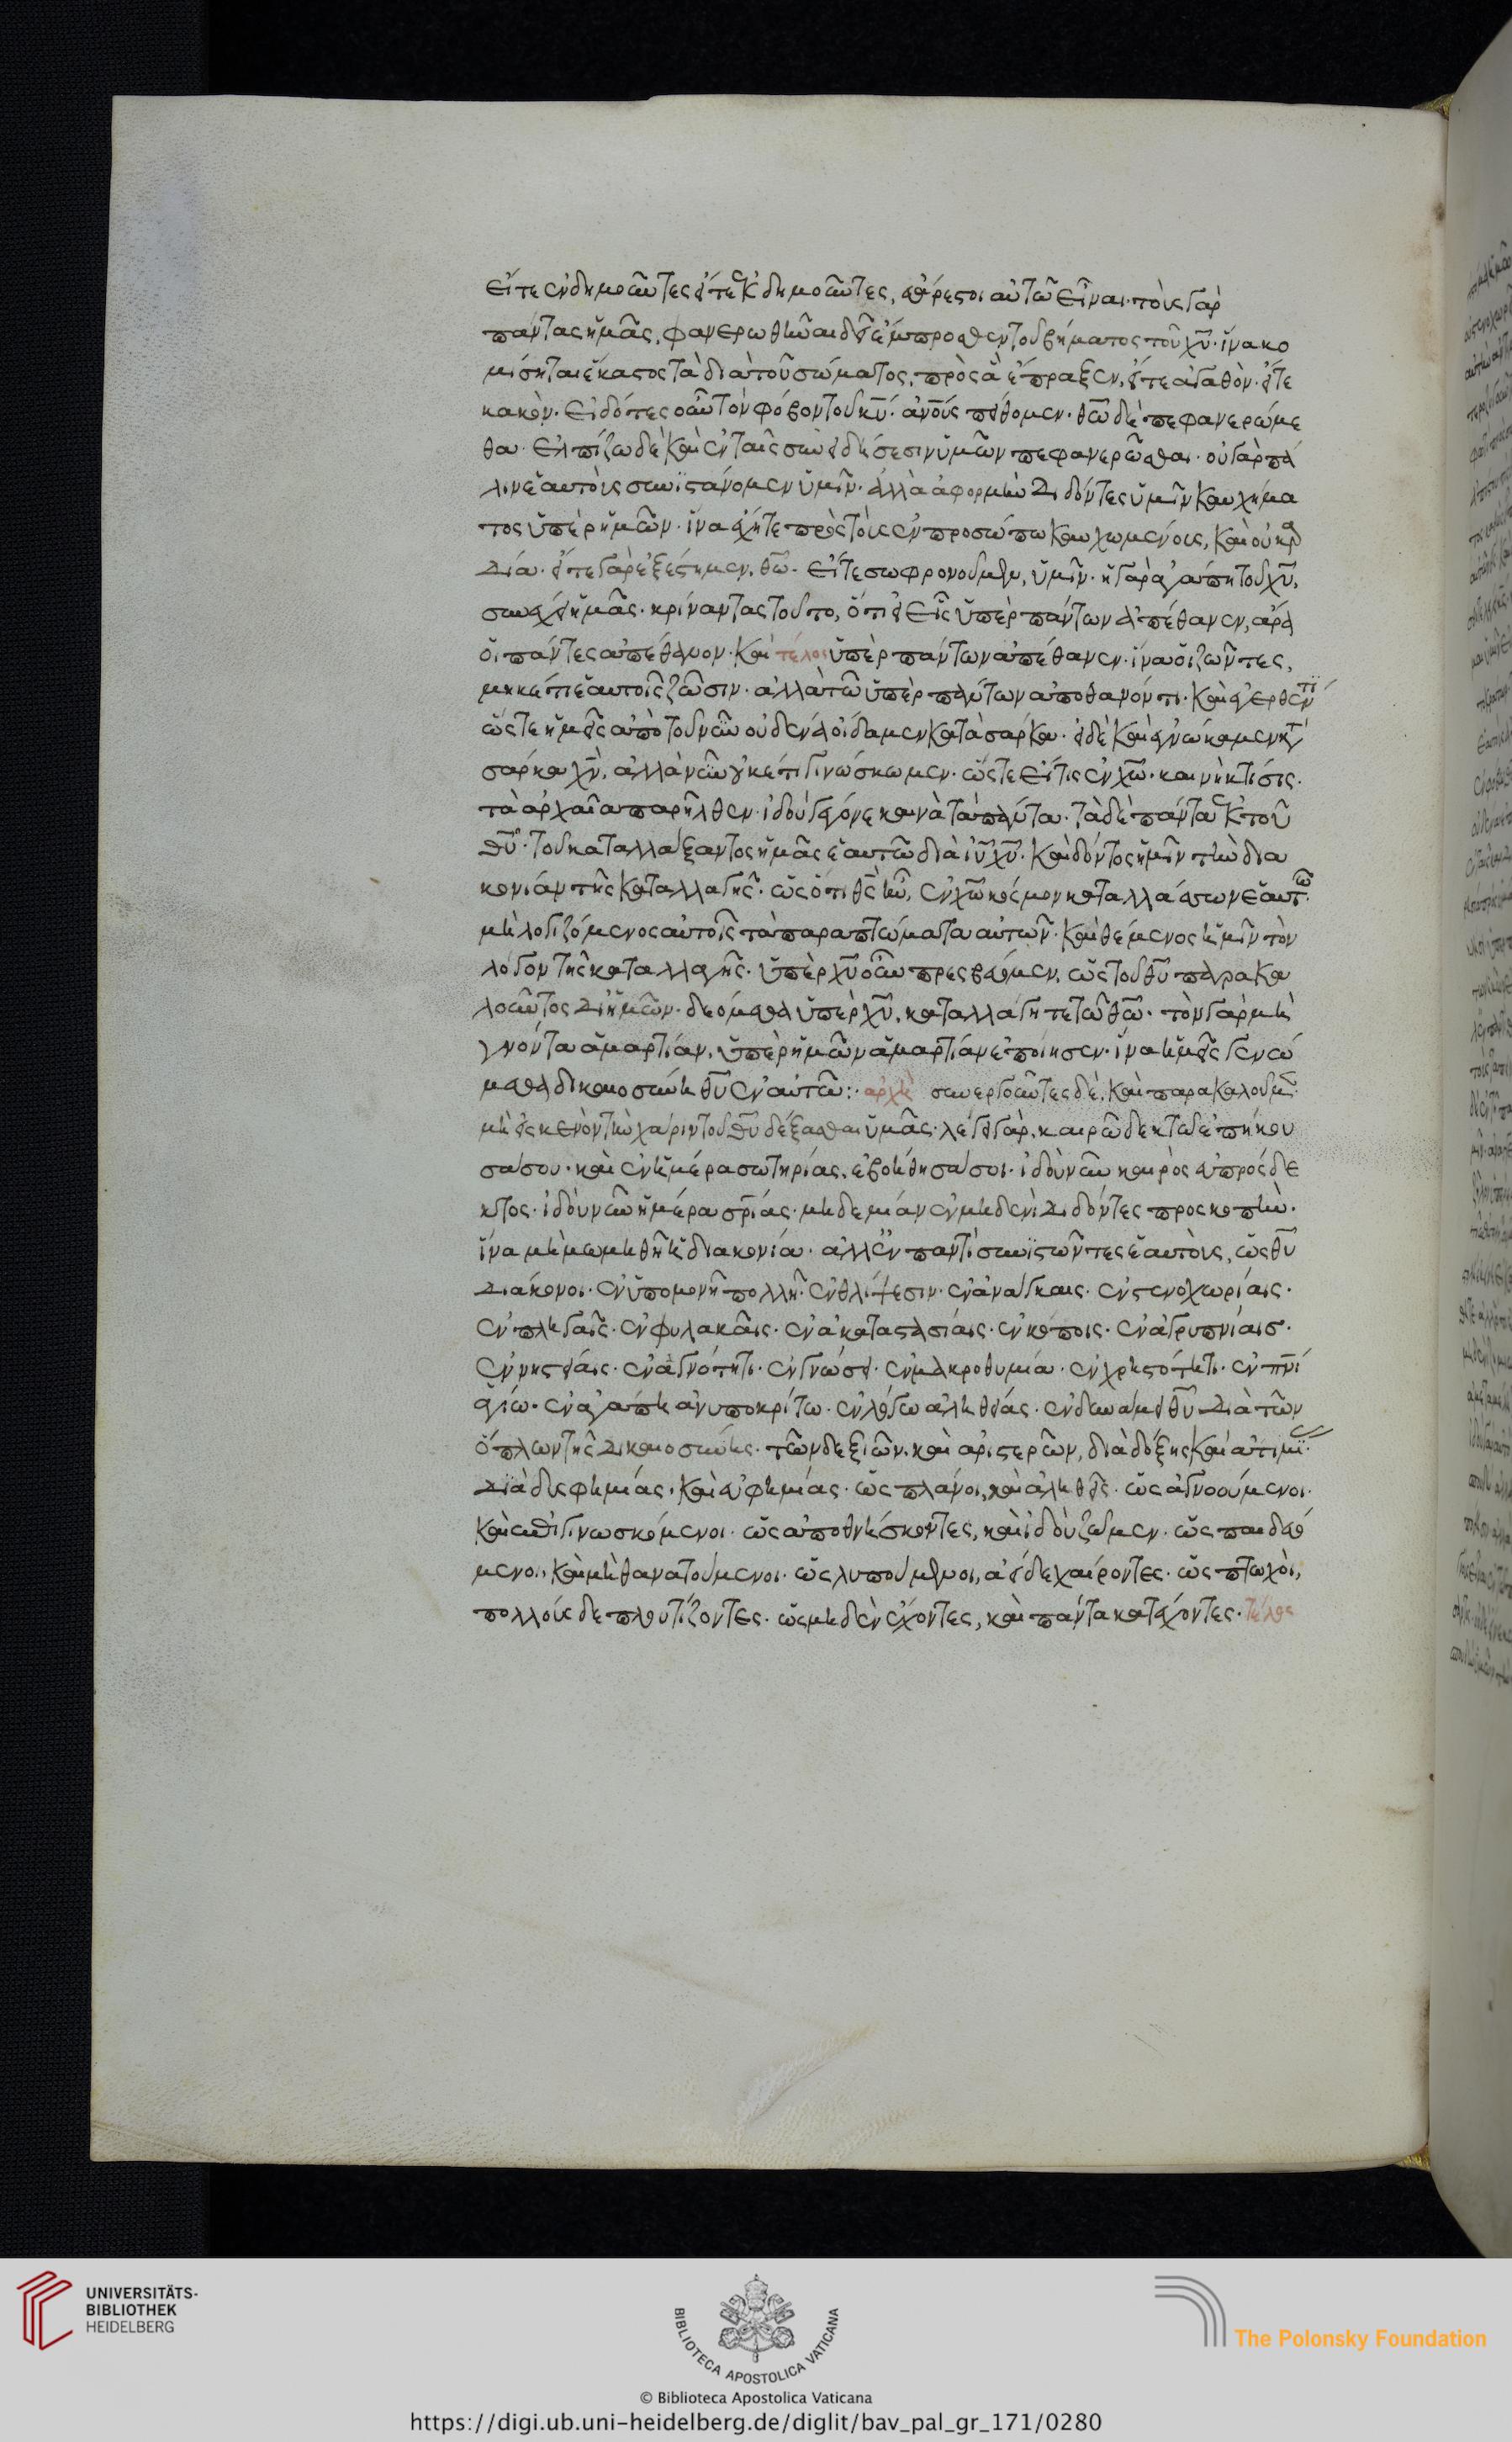 εἴτε ἐνδημοῦντες εἴτε ἐκδημοῦντες, εὐάρεστοι αὐτῶ εἶναι· τοὺς γὰρ
πάντας ἡμᾶς, φανερωθῆναι δεῖ ἔμπροσθεν τοῦ βήματος τοῦ χυ̅· ἵνα κο
μίσηται ἕκαστος τὰ διὰ τοῦ σώματος, πρὸς ἃ ἔπραξεν, εἴτε ἀγαθὸν· εἴτε
κακὸν· Εἰδότες οὖν τὸν φόβον τοῦ κυ̅· ἀνο̅υς πείθομεν· θω̅ δὲ πεφανερώμε
θα· Ελπίζω δὲ καὶ ἐν ταῖς συνειδήσεσιν ὑμῶν πεφανερῶσθαι· οὐ γὰρ πά
λιν ἑαυτοὺς συνϊστάνομεν ὑμῖν· ἀλλὰ ἀφορμὴν διδόντες ὑμῖν καυχήμα
τος ὑπὲρ ἡμῶν· ἵνα ἔχητε πρὸς τοὺς ἐν προσώπω καυχωμένους, καὶ οὐ καρ
δία· εἴτε γὰρ ἐξέστημεν, θω̅· Εἴτε σωφρονοῦμεν, ὑμῖν· ἡ γὰρ ἀγάπη τοῦ χυ̅,
συνέχει ἡμᾶς· κρίναντας τοῦτο, ὅτι εἰ εἷς ὑπὲρ πάντων ἀπέθανεν, ἄρα
οἱ πάντες ἀπέθανον· Καὶ τέλος ὑπὲρ πάντων ἀπέθανεν· ἵνα οἱ ζῶντες,
μηκέτι ἑαυτοῖς ζῶσιν· ἀλλὰ τῶ ὑπὲρ πάντων ἀποθανόντι· καὶ ἐγερθέντι
ὥστε ἡμεῖς ἀπὸ τοῦ νῦν οὐδένα οἴδαμεν κατὰ σάρκα· εἰ δὲ καὶ ἐγνώκαμεν κτ̅
σάρκα χν̅, ἀλλὰ νῦν οὐκέτι γινώσκωμεν· ὥστε εἴτις ἐν χω̅· καινὴ κτίσις·
τὰ ἀρχαῖα παρῆλθεν· ἰδοὺ γέγονε καινὰ τὰ πάντα· τὰ δὲ πάντα ἐκ τοῦ
θυ̅· τοῦ καταλλάξαντος ἡμᾶς ἑαυτῶ διὰ ιυ̅ χυ̅· Καὶ δόντος ἡμῖν τὴν δια
κονίαν τῆς καταλλαγῆς· ὡς ὅτι θς̅ ἦν, ἐν χω̅ κόσμον καταλλάσσων ἑαυτῶ·
μὴ λογιζόμενος αὐτοῖς τὰ παραπτώματα αὐτῶν· Καὶ θέμενος ἡμῖν τὸν
λόγον τῆς καταλλαγῆς· ὑπὲρ χυ̅ οὖν πρεσβεύομεν, ὡς τοῦ θυ̅ παρακα
λοῦντος δι ἡμῶν· δεόμεθα ὑπὲρ χυ̅, καταλλάγητε τῶ θω̅· τὸν γὰρ μὴ
γνόντα ἁμαρτίαν, ὑπὲρ ἡμῶν ἁμαρτίαν ἐποίησεν· ἵνα ἡμεῖς γενώ
μεθα δικαιοσύνη θυ̅ ἐν αὐτῶ:· αρχὴ συνεργοῦντες δὲ, καὶ παρακαλοῦμεν·
μὴ εἰς κενὸν τὴν χάριν τοῦ θυ̅ δέξασθαι ὑμᾶς· λέγει γὰρ, καιρῶ δεκτῶ ἐπήκου
σά σου· καὶ ἐν ἡμέρα σωτηρίας, ἐβοήθησά σοι· ἰδοὺ νῦν καιρὸς εὐπρόσδε
κτος· ἰδοὺ νῦν ἡμέρα σρ̅ίας· μηδεμίαν ἐν μηδενὶ διδόντες προσκοπὴν·
ἵνα μὴ μωμηθῆ ἡ διακονία· ἀλλ' ἐν παντὶ συνϊστῶντες ἑαυτοὺς, ὡς θυ̅
διάκονοι· ἐν ὑπομονῆ πολλῆ· ἐν θλίψεσιν· ἐν ἀνάγκαις· ἐν στενοχωρίαις·
ἐν πληγαῖς· ἐν φυλακαῖς· ἐν ἀκαταστασίαις· ἐν κόποις· ἐν ἀγρυπνίαισ·
ἐν νηστείαις· ἐν ἁγνότητι· ἐν γνώσει· ἐν μακροθυμία· ἐν χρηστότητι· ἐν πνι̅
ἁγίω· ἐν ἀγάπη ἀνυποκρίτω· ἐν λόγω ἀληθείας· ἐν δυνάμει θυ̅ διὰ τῶν
ὅπλων τῆς δικαιοσύνης· τῶν δεξιῶν· καὶ ἀριστερῶν, διὰ δόξης καὶ ἀτιμΐ·
διὰ δυσφημίας· καὶ εὐφημίας· ὡς πλάνοι, καὶ ἀληθεῖς· ὡς ἀγνοούμενοι·
καὶ ἐπιγινωσκόμενοι· ὡς ἀποθνήσκοντες, καὶ ἰδοὺ ζῶμεν· ὡς παιδευό
μενοι, καὶ μὴ θανατούμενοι· ὡς λυπούμενοι, ἀεὶ δὲ χαίροντες· ὡς πτωχοὶ,
πολλοὺς δὲ πλουτίζοντες· ὡς μηδὲν ἔχοντες, καὶ πάντα κατέχοντες· τέλος
UNIVERSITÄTS-
BIBLIOTHEK
HEIDELBERG
BIBLIOTECA APOSTOLICA VATICANA
The Polonsky Foundation
© Biblioteca Apostolica Vaticana
https://digi.ub.uni-heidelberg.de/diglit/bav_pal_gr_171/0280